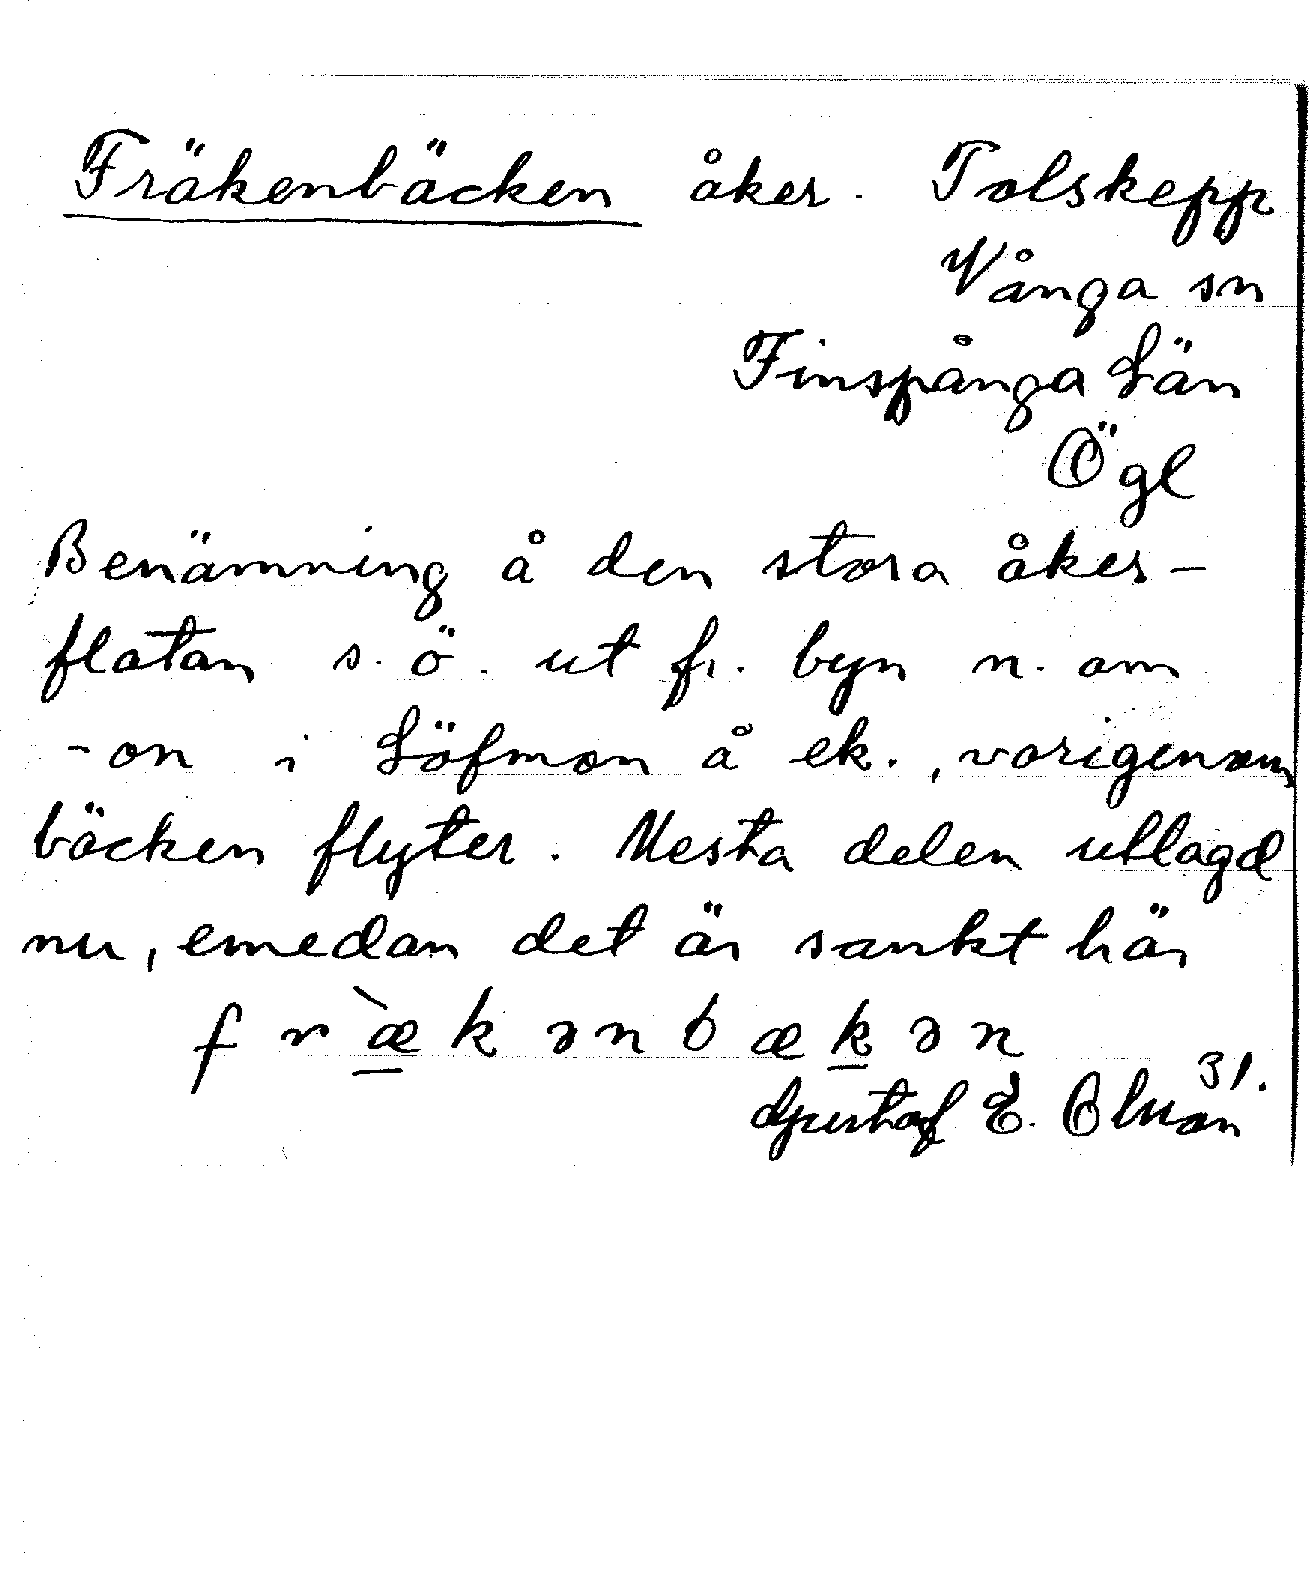 Fräkenbäcken åker. Tolskepp
Vånga sn
Finspånga Län
Ögl
Benämning å den stora åker-
flatan s.ö. ut fr. byn n. om
-on i Löfmon å ek., varigenom
bäcken flyter. Mesta delen utlagd
nu, emedan det är sankt här
fræ̀kənbækən
31.
Gustaf E.